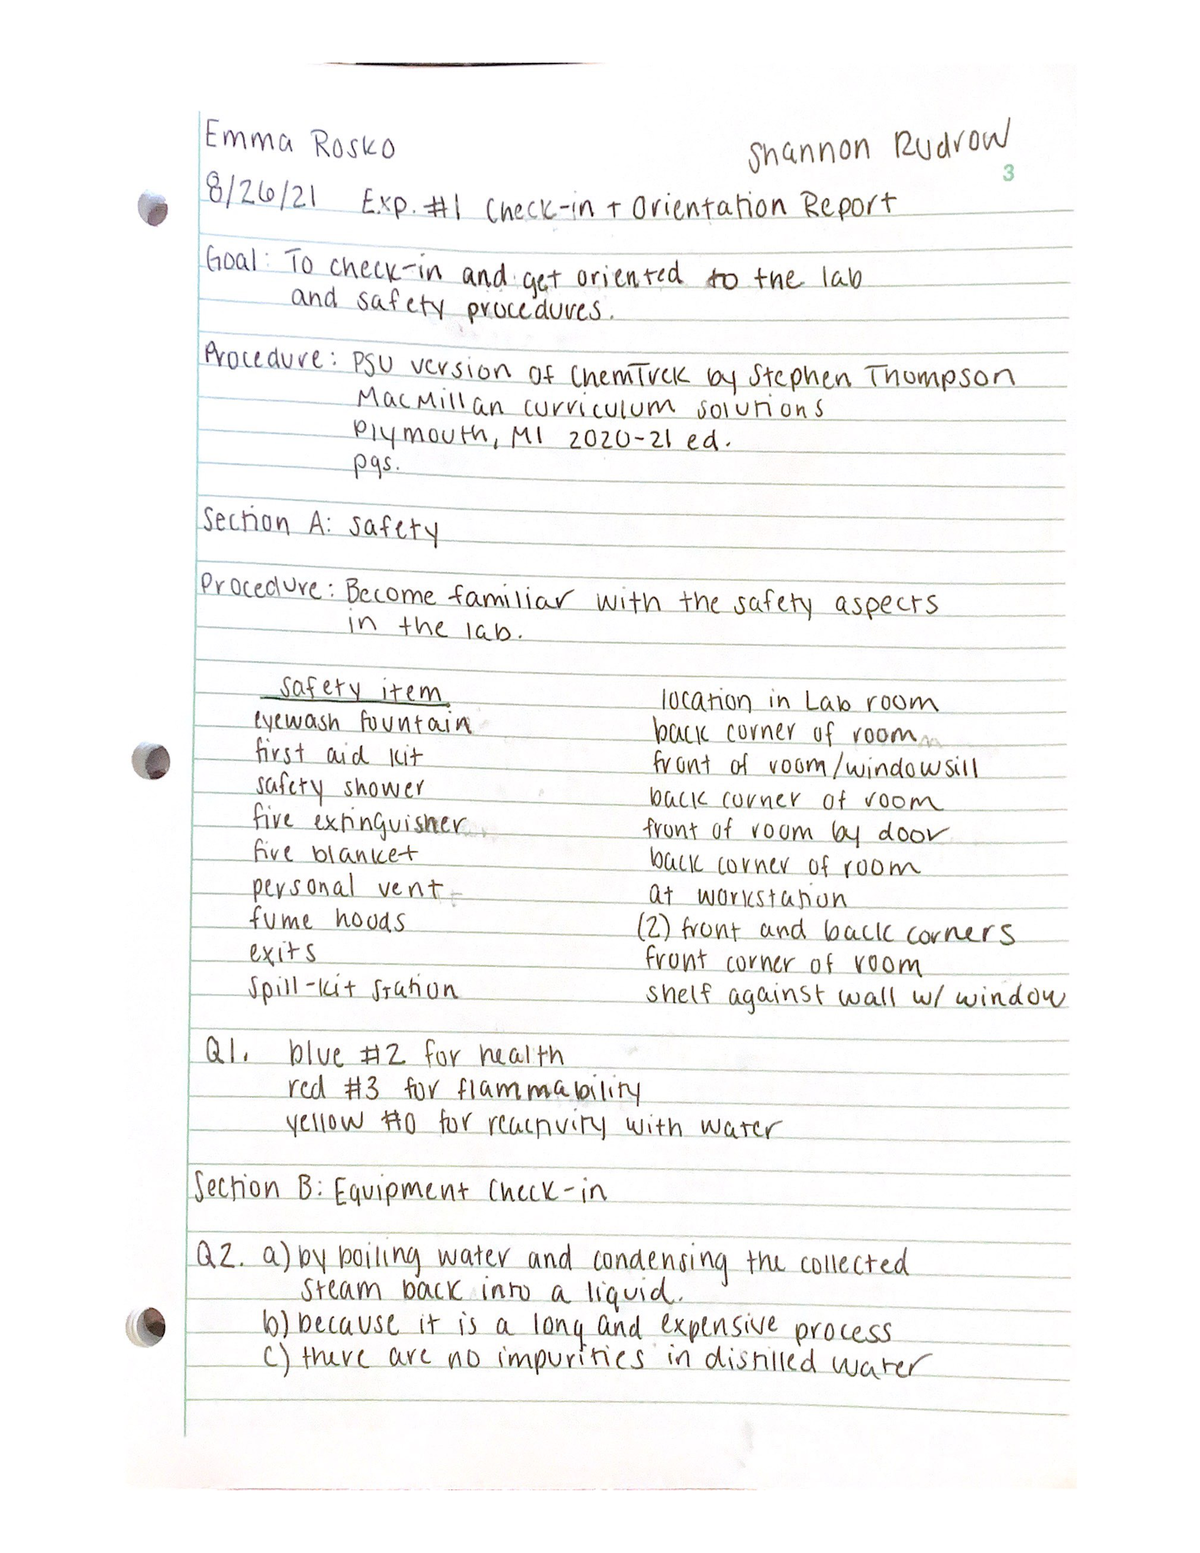 Emma Rosko Shannon Rudrow
3
8/26/21 Exp. #1 Check-in + Orientation Report
Goal: To check-in and get oriented to the lab
and safety procedures.
Procedure: PSU version of ChemTrek by Stephen Thompson
MacMillan curriculum solutions
Plymouth, MI 2020-21 ed.
pgs.
Section A: Safety
Procedure: Become familiar with the safety aspects
in the lab.
safety item location in Lab room
eyewash fountain back corner of room
first aid kit front of room/windowsill
safety shower back corner of room
fire extinguisher front of room by door
fire blanket back corner of room
personal vent at workstation
fume hoods (2) front and back corners
exits front corner of room
spill-kit station shelf against wall w/ window
Q1. blue #2 for health
red #3 for flammability
yellow #0 for reactivity with water
Section B: Equipment Check-in
Q2. a) by boiling water and condensing the collected
steam back into a liquid.
b) because it is a long and expensive process
c) there are no impurities in distilled water